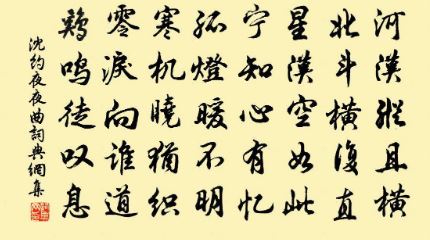 河漢縱且橫
北斗橫復直
星漢空如此
宁知心有忆
孤燈暖不明
寒机曉猶織
零淚向誰道
鷄鳴徒叹息
沈約夜夜曲詞典網集